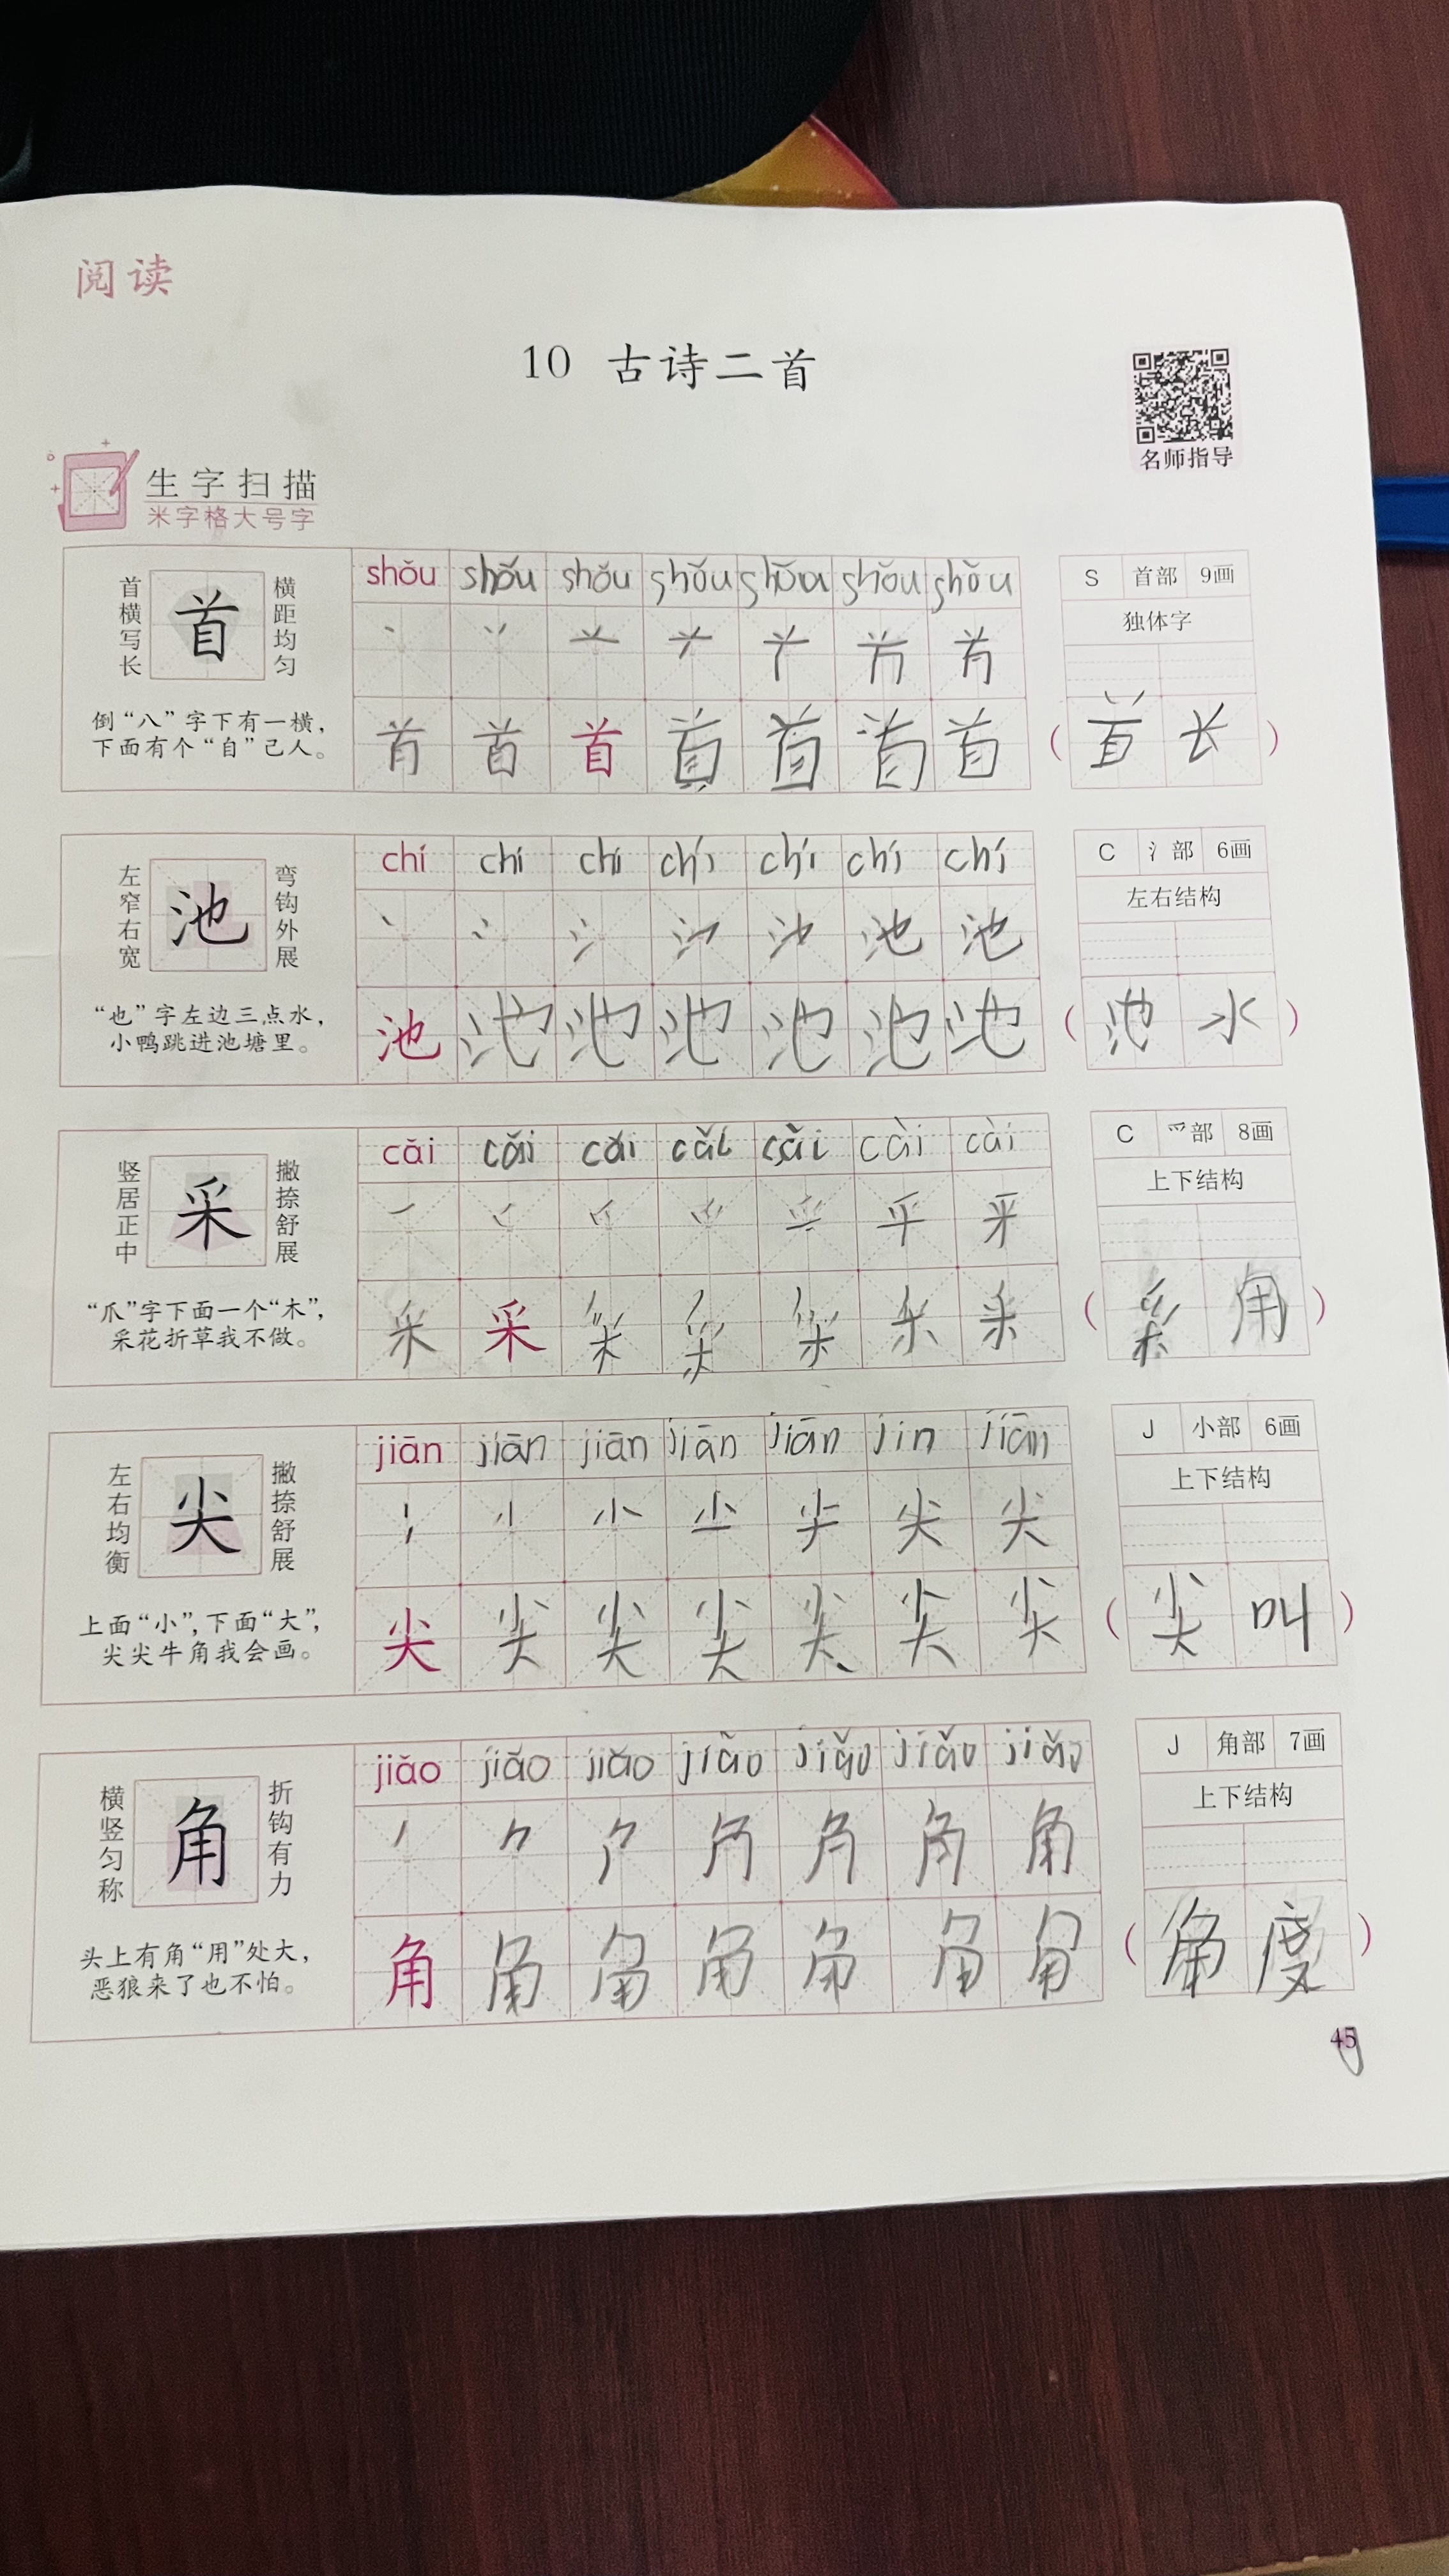 阅读
10 古诗二首
名师指导
生字扫描
米字格大号字
首横写长
首
横距均匀
倒“八”字下有一横，
下面有个“自”己人。
shǒu shǒu shǒu shǒu shǒu shǒu shǒu
首 首 首 首 首 首 首
S 首部 9画
独体字
（首长）
左窄右宽
池
弯钩外展
“也”字左边三点水，
小鸭跳进池塘里。
chí chí chí chí chí chí chí
池 池
池 池 池 池 池 池 池
C 氵部 6画
左右结构
（池水）
竖居正中
采
撇捺舒展
“爪”字下面一个“木”，
采花折草我不做。
cǎi cǎi cǎi cǎi cǎi cài cài
采 采 采 采 采 采 采
C 爫部 8画
上下结构
（采角）
左右均衡
尖
撇捺舒展
上面“小”，下面“大”，
尖尖牛角我会画。
jiān jiān jiān jiān jiān jin jiān
小 尖 尖
尖 尖 尖 尖 尖 尖 尖
J 小部 6画
上下结构
（尖叫）
横竖匀称
角
折钩有力
头上有角“用”处大，
恶狼来了也不怕。
jiǎo jiǎo jiǎo jiǎo jiǎo jiǎo jiǎo
角
角 角 角 角 角 角 角
J 角部 7画
上下结构
（角度）
45